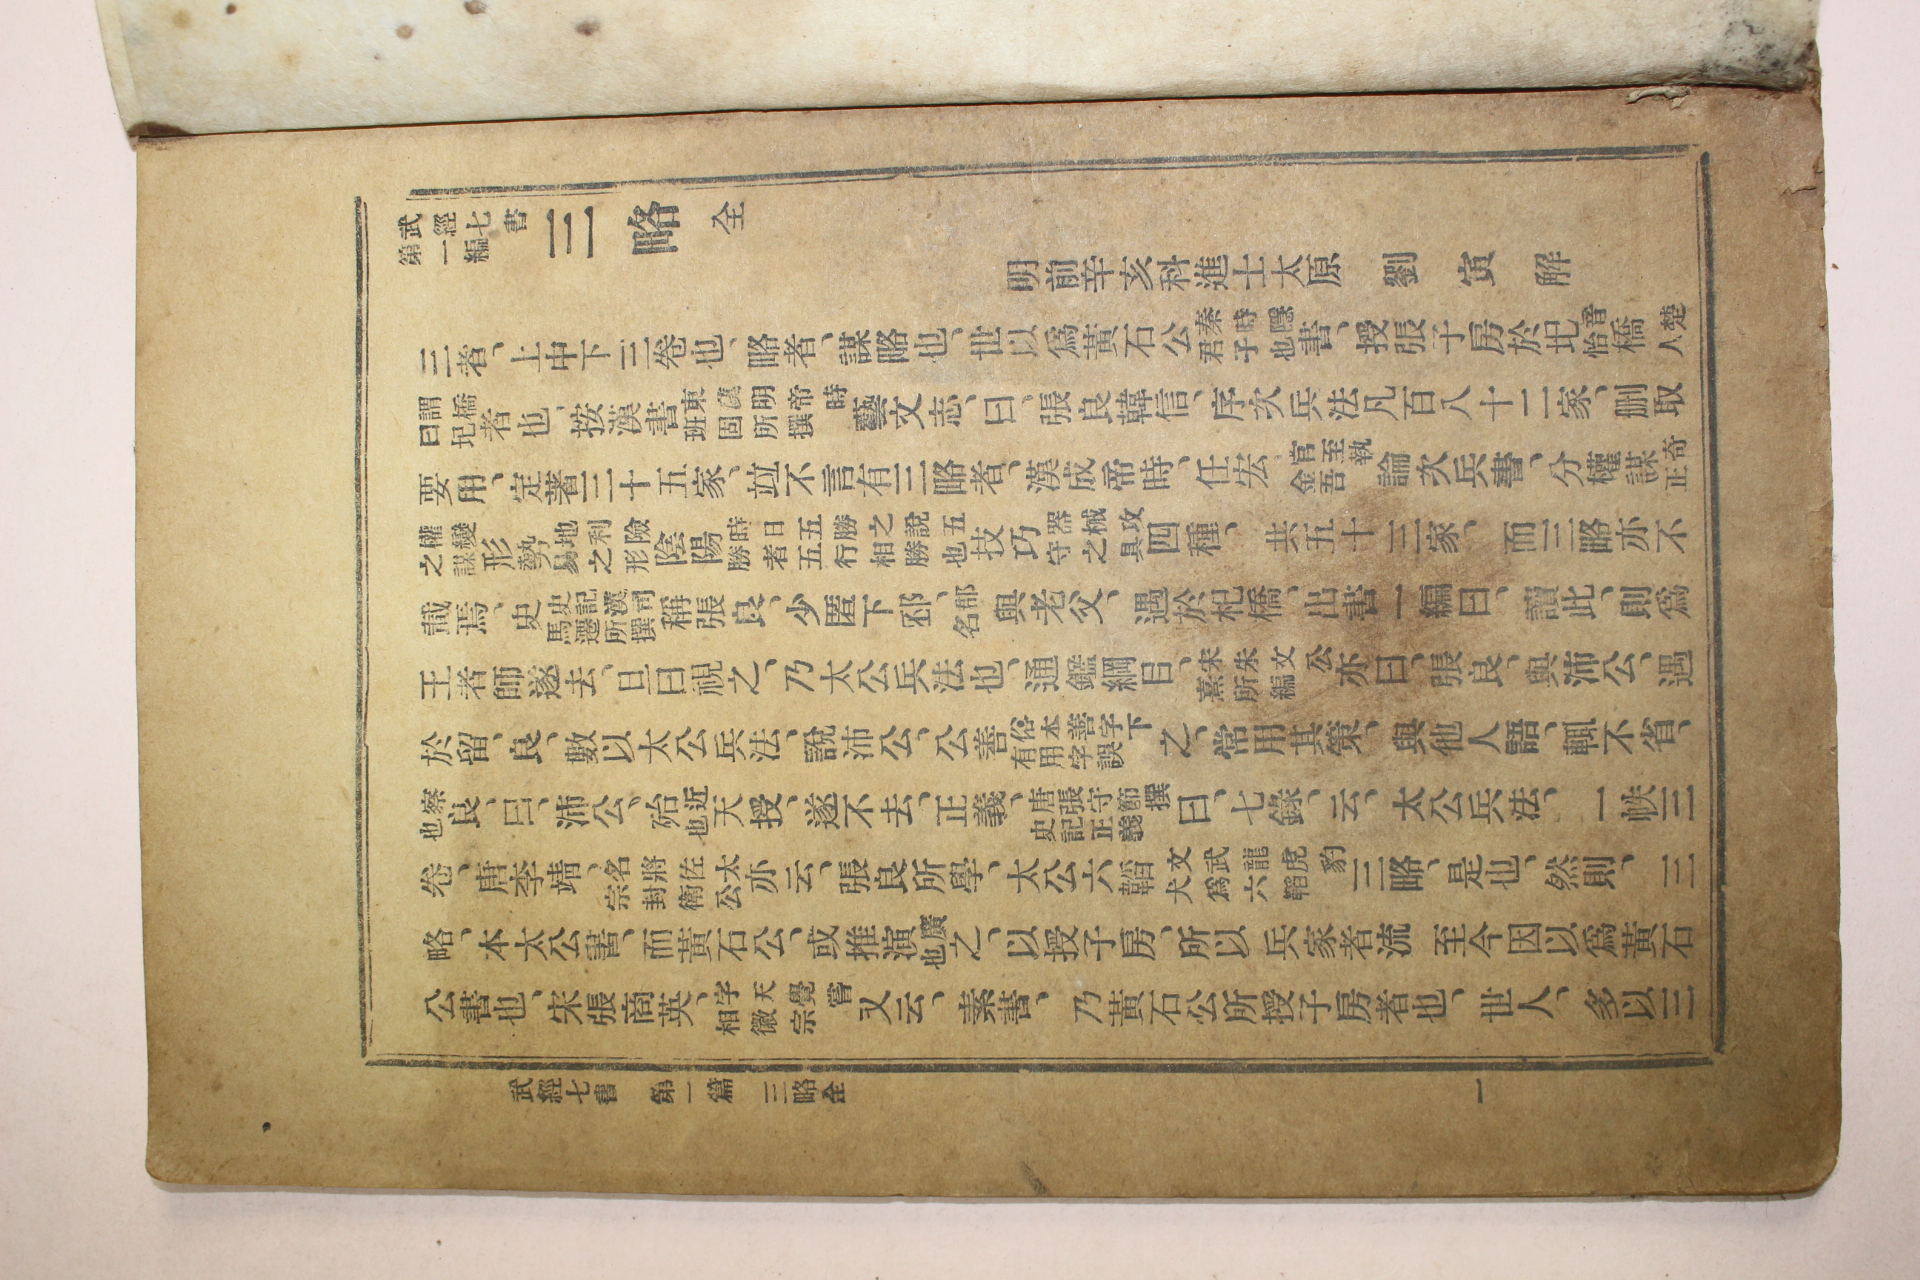 武經七書第一編 三略 全
明前辛亥科進士太原 劉 寅 解
三者、上中下三卷也、略者、謀略也、世以爲黃石公秦時隱君子也書、授張子房於圯音怡橋楚人
謂橋曰圯者也、按漢書東漢明帝時班固所撰藝文志、曰、張良韓信、序次兵法凡百八十二家、删取
要用、定著三十五家、竝不言有三略者、漢成帝時、任宏官至執金吾論次兵書、分權謀奇正
權變之謀形勢地利險易之形陰陽時日五勝之說五勝者五行相勝也技巧器械攻守之具四種、共五十三家、而三略亦不
載焉、史史記漢司馬遷所撰稱張良、少匿下邳、郡名與老父、遇於圯橋、出書一編曰、讀此、則爲
王者師遂去、旦日視之、乃太公兵法也、通鑑綱目、宋朱文公熹所編亦曰、張良、與沛公、遇
於留、良、數以太公兵法、說沛公、公善俗本善字下有用字誤之、常用其策、與他人語、輒不省、
察也良、曰、沛公、殆近也天授、遂不去、正義、唐張守節撰史記正義曰、七錄、云、太公兵法、一帙三
卷、唐李靖、名將佐太宗封衛公亦云、張良所學、太公六韜文武龍虎豹犬爲六韜三略、是也、然則、三
略、本太公書、而黃石公、或推演廣也之、以授子房、所以兵家者流 至今因以爲黃石
公書也、宋張商英、字天覺嘗相徽宗又云、素書、乃黃石公所授子房者也、世人、多以三
武經七書 第一篇 三略全 一